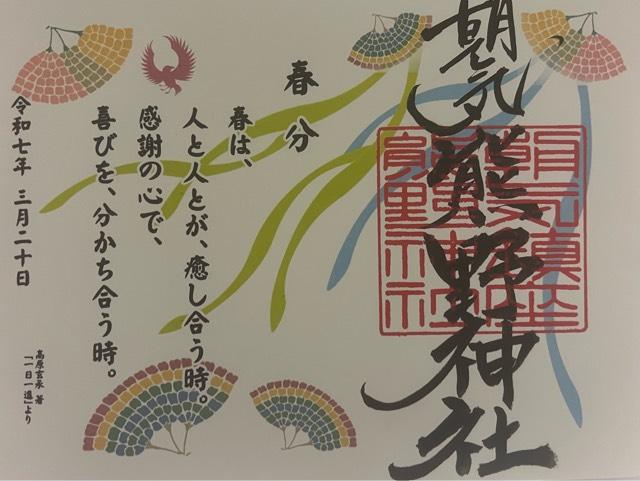 朝気熊野神社
春分
春は、
人と人とが、癒し合う時。
感謝の心で、
喜びを、分かち合う時。
令和七年 三月二十日
高原玄承 著
「一日一進」より